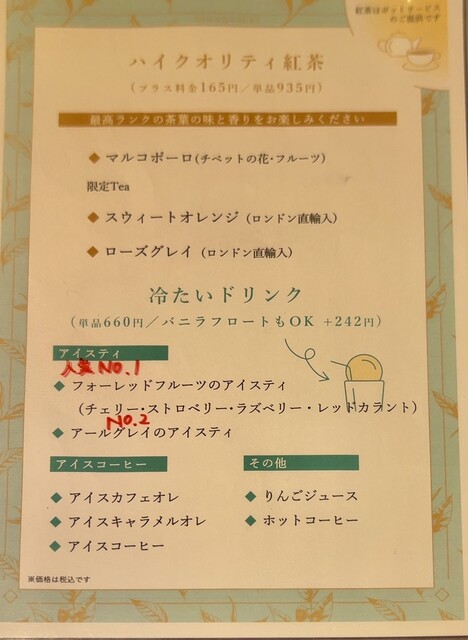 紅茶はポットサービス
のご提供です
ハイクオリティ紅茶
(プラス料金165円/単品935円)
最高ランクの茶葉の味と香りをお楽しみください
◆ マルコポーロ(チベットの花・フルーツ)
限定Tea
◆ スウィートオレンジ (ロンドン直輸入)
◆ ローズグレイ (ロンドン直輸入)
冷たいドリンク
(単品660円/バニラフロートもOK +242円)
アイスティ
人気NO.1
◆ フォーレッドフルーツのアイスティ
(チェリー・ストロベリー・ラズベリー・レッドカラント)
NO.2
◆ アールグレイのアイスティ
アイスコーヒー
◆ アイスカフェオレ
◆ アイスキャラメルオレ
◆ アイスコーヒー
その他
◆ りんごジュース
◆ ホットコーヒー
※価格は税込です